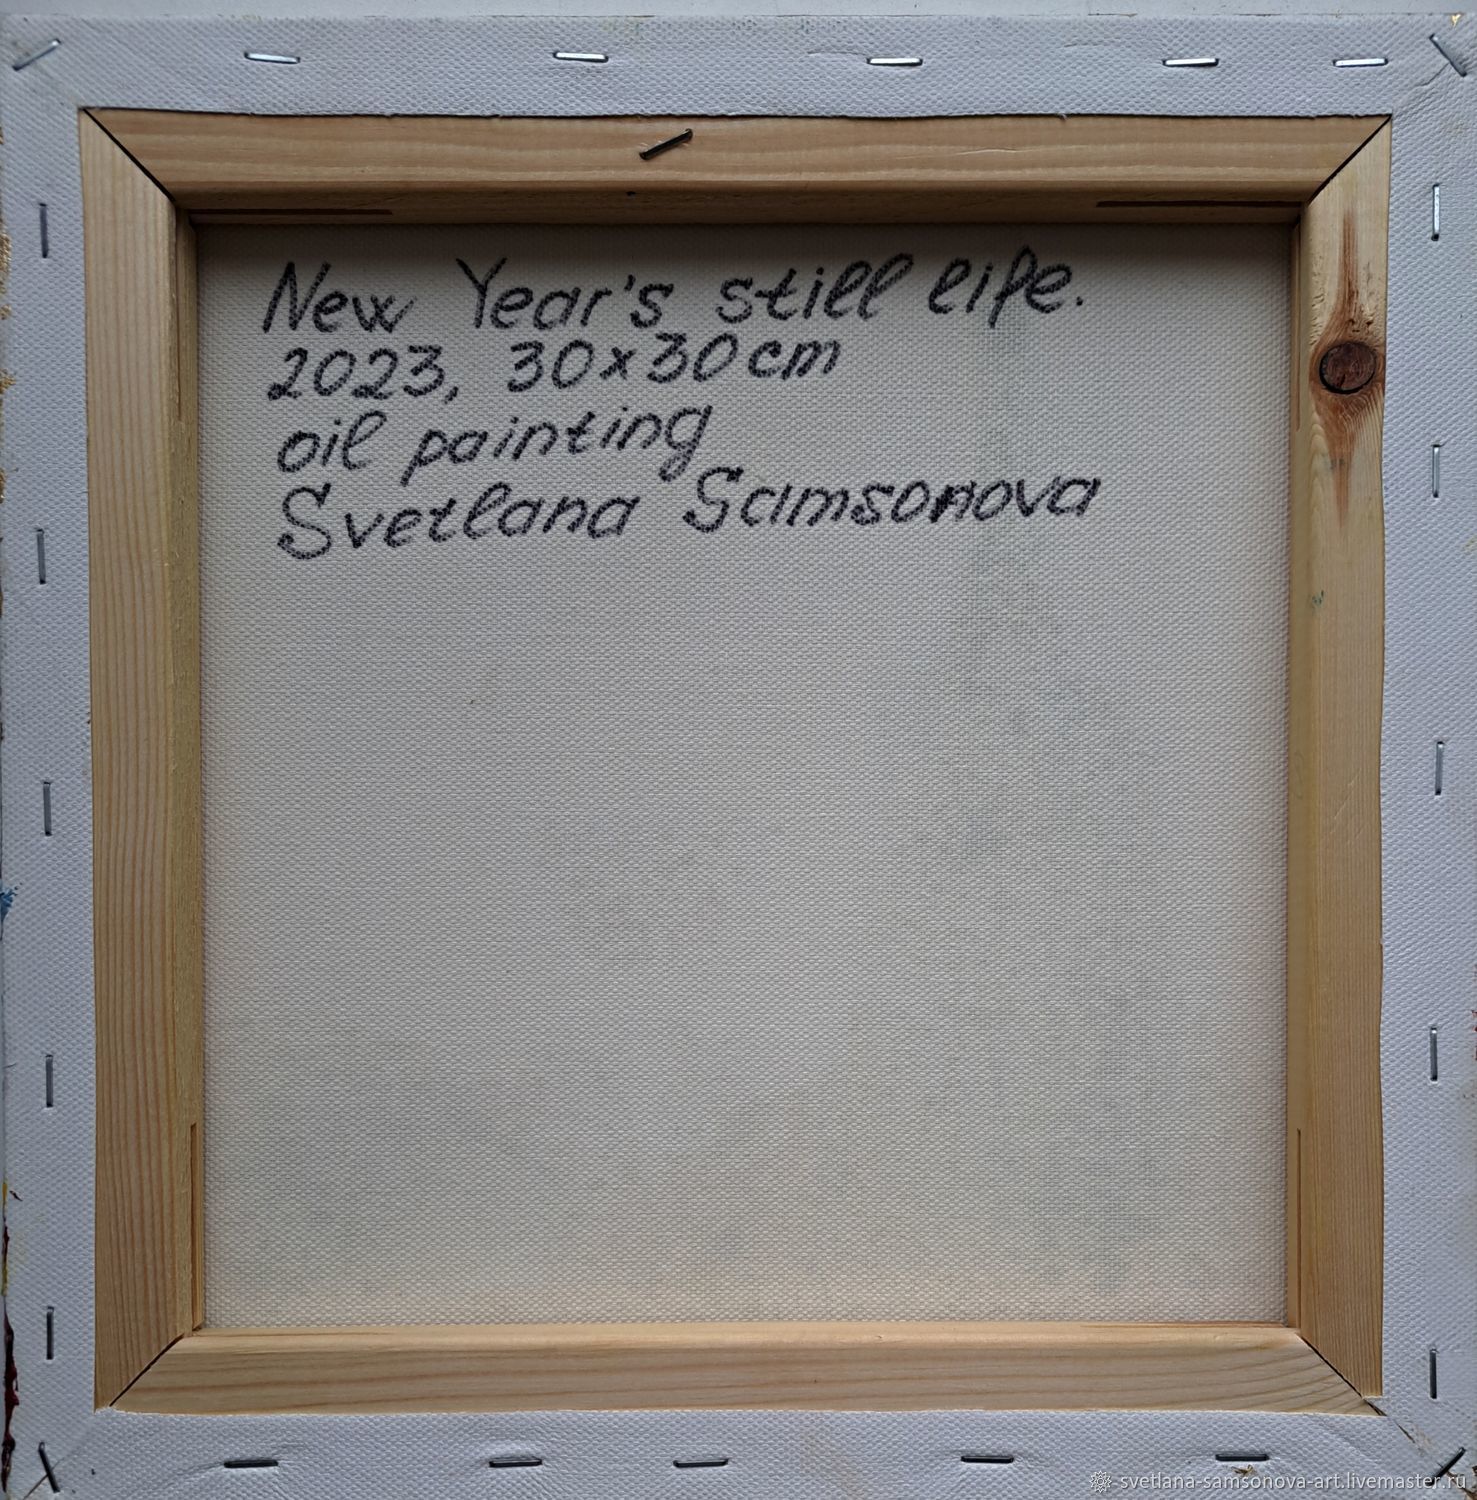 New Year's still life.
2023, 30x30cm
oil painting
Svetlana Samsonova
svetlana-samsonova-art.livemaster.ru